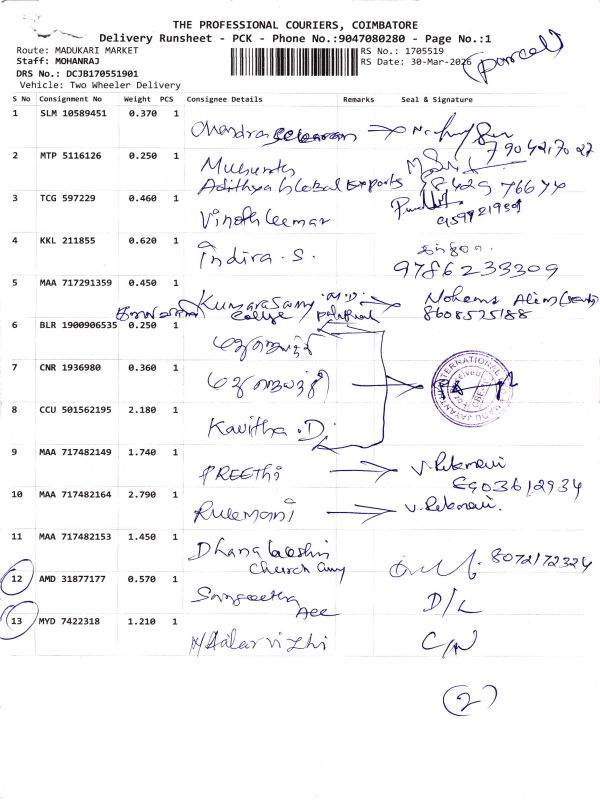 THE PROFESSIONAL COURIERS, COIMBATORE
Delivery Runsheet - PCK - Phone No.:9047080280 - Page No.:1
Route: MADUKARI MARKET
RS No.: 1705519
Staff: MOHANRAJ
RS Date: 30-Mar-2026
(parcel)
DRS No.: DCJB170551901
Vehicle: Two Wheeler Delivery
S No Consignment No Weight PCS Consignee Details Remarks Seal & Signature
1 SLM 10589451 0.370 1 Chandra
7904217027
2 MTP 5116126 0.250 1
Adithya Global Exports 7842976674
3 TCG 597229 0.460 1 Vinothkumar
4 KKL 211855 0.620 1 Indira. S.
9786233309
5 MAA 717291359 0.450 1 Kumarasamy
College 8608525188
6 BLR 1900906535 0.250 1
7 CNR 1936980 0.360 1
8 CCU 501562195 2.180 1 Kavitha. D.
9 MAA 717482149 1.740 1 PREEthi V. Rukmani
8903612934
10 MAA 717482164 2.790 1 Rukmani V. Rukmani.
11 MAA 717482153 1.450 1 Dhanalakshmi 8072172324
Church
12 AMD 31877177 0.570 1 Sangeetha D/L
13 MYD 7422318 1.210 1 Malarvizhi C/N
(2)